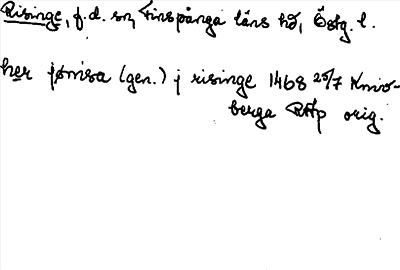 Risinge, f.d. sn, Finspånga läns hd, Östg. l.
her jønisa (gen.) j risinge 1468 25/7 Knivs-
berga RAp orig.